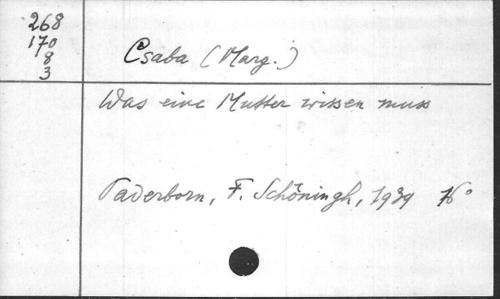 268
170
8
3
Csaba (Marg.)
Was eine Mutter wissen muss
Paderborn, F. Schöningh, 1939 16°